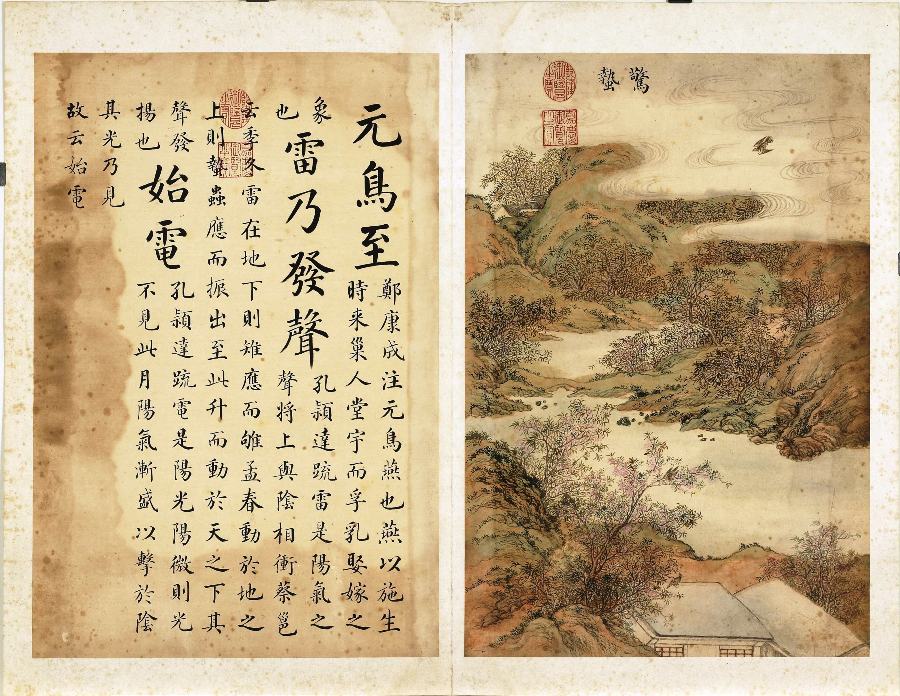 驚蟄
元鳥至
鄭康成注元鳥燕也燕以施生
時来巢人堂宇而孚乳娶嫁之
象
也
雷乃發聲
孔頴達疏雷是陽氣之
聲將上與陰相衝蔡邕
云季冬雷在地下則雉應而雊孟春動於地之
上則蟄蟲應而振出至此升而動於天之下其
聲發
揚也
始電
孔頴達疏電是陽光陽微則光
不見此月陽氣漸盛以擊於陰
其光乃見
故云始電